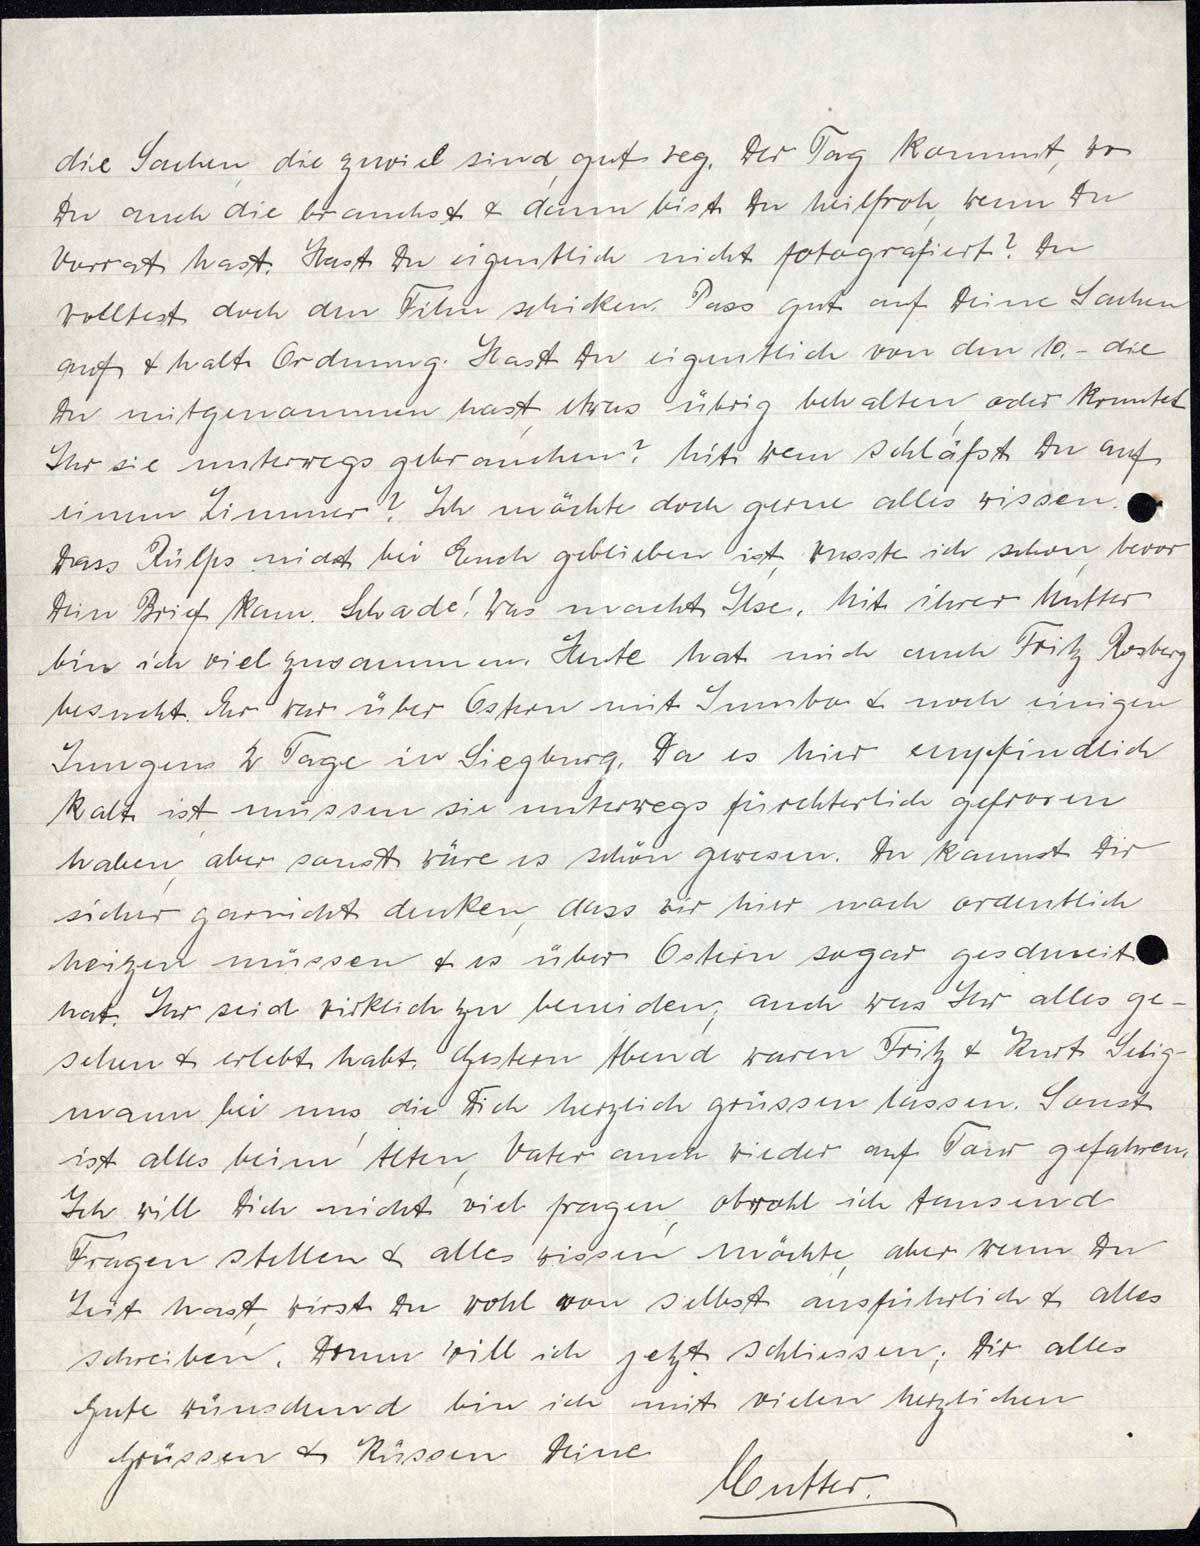 die Sachen, die zuviel sind, gut weg. Der Tag kommt, wo
Du auch die brauchst & dann bist Du heilfroh, wenn Du
Vorrat hast. Hast Du eigentlich nicht fotografiert? Du
wolltest doch den Film schicken. Pass gut auf Deine Sachen
auf & halt Ordnung. Hast Du eigentlich von den 10.- die
Du mitgenommen hast, etwas übrig behalten, oder konntet
Ihr sie unterwegs gebrauchen? Mit wem schläfst Du auf
einem Zimmer? Ich möchte doch gerne alles wissen.
Dass Rülps nicht bei Euch geblieben ist, wusste ich schon, bevor
Dein Brief kam. Schade! Was macht Ilse. Mit ihrer Mutter
bin ich viel zusammen. Heute hat mich auch Fritz Rosberg
besucht. Er war über Ostern mit Jumbo & noch einigen
Jungens 2 Tage in Siegburg. Da es hier empfindlich
kalt ist, müssen sie unterwegs fürchterlich gefroren
haben, aber sonst wäre es schön gewesen. Du kannst Dir
sicher garnicht denken, dass wir hier noch ordentlich
heizen müssen & es über Ostern sogar geschneit
hat. Ihr seid wirklich zu beneiden, auch was Ihr alles ge-
sehen & erlebt habt. Gestern Abend waren Fritz & Kurt Selig-
mann bei uns, die Dich herzlich grüssen lassen. Sonst
ist alles beim Alten, Vater auch wieder auf Tour gefahren.
Ich will Dich nicht viel fragen, obwohl ich tausend
Fragen stellen & alles wissen möchte, aber wenn Du
Zeit hast, wirst Du wohl von selbst ausführlich & alles
schreiben. Drum will ich jetzt schliessen; Dir alles
Gute wünschend bin ich mit vielen herzlichen
Grüssen & Küssen Deine
Mutter.